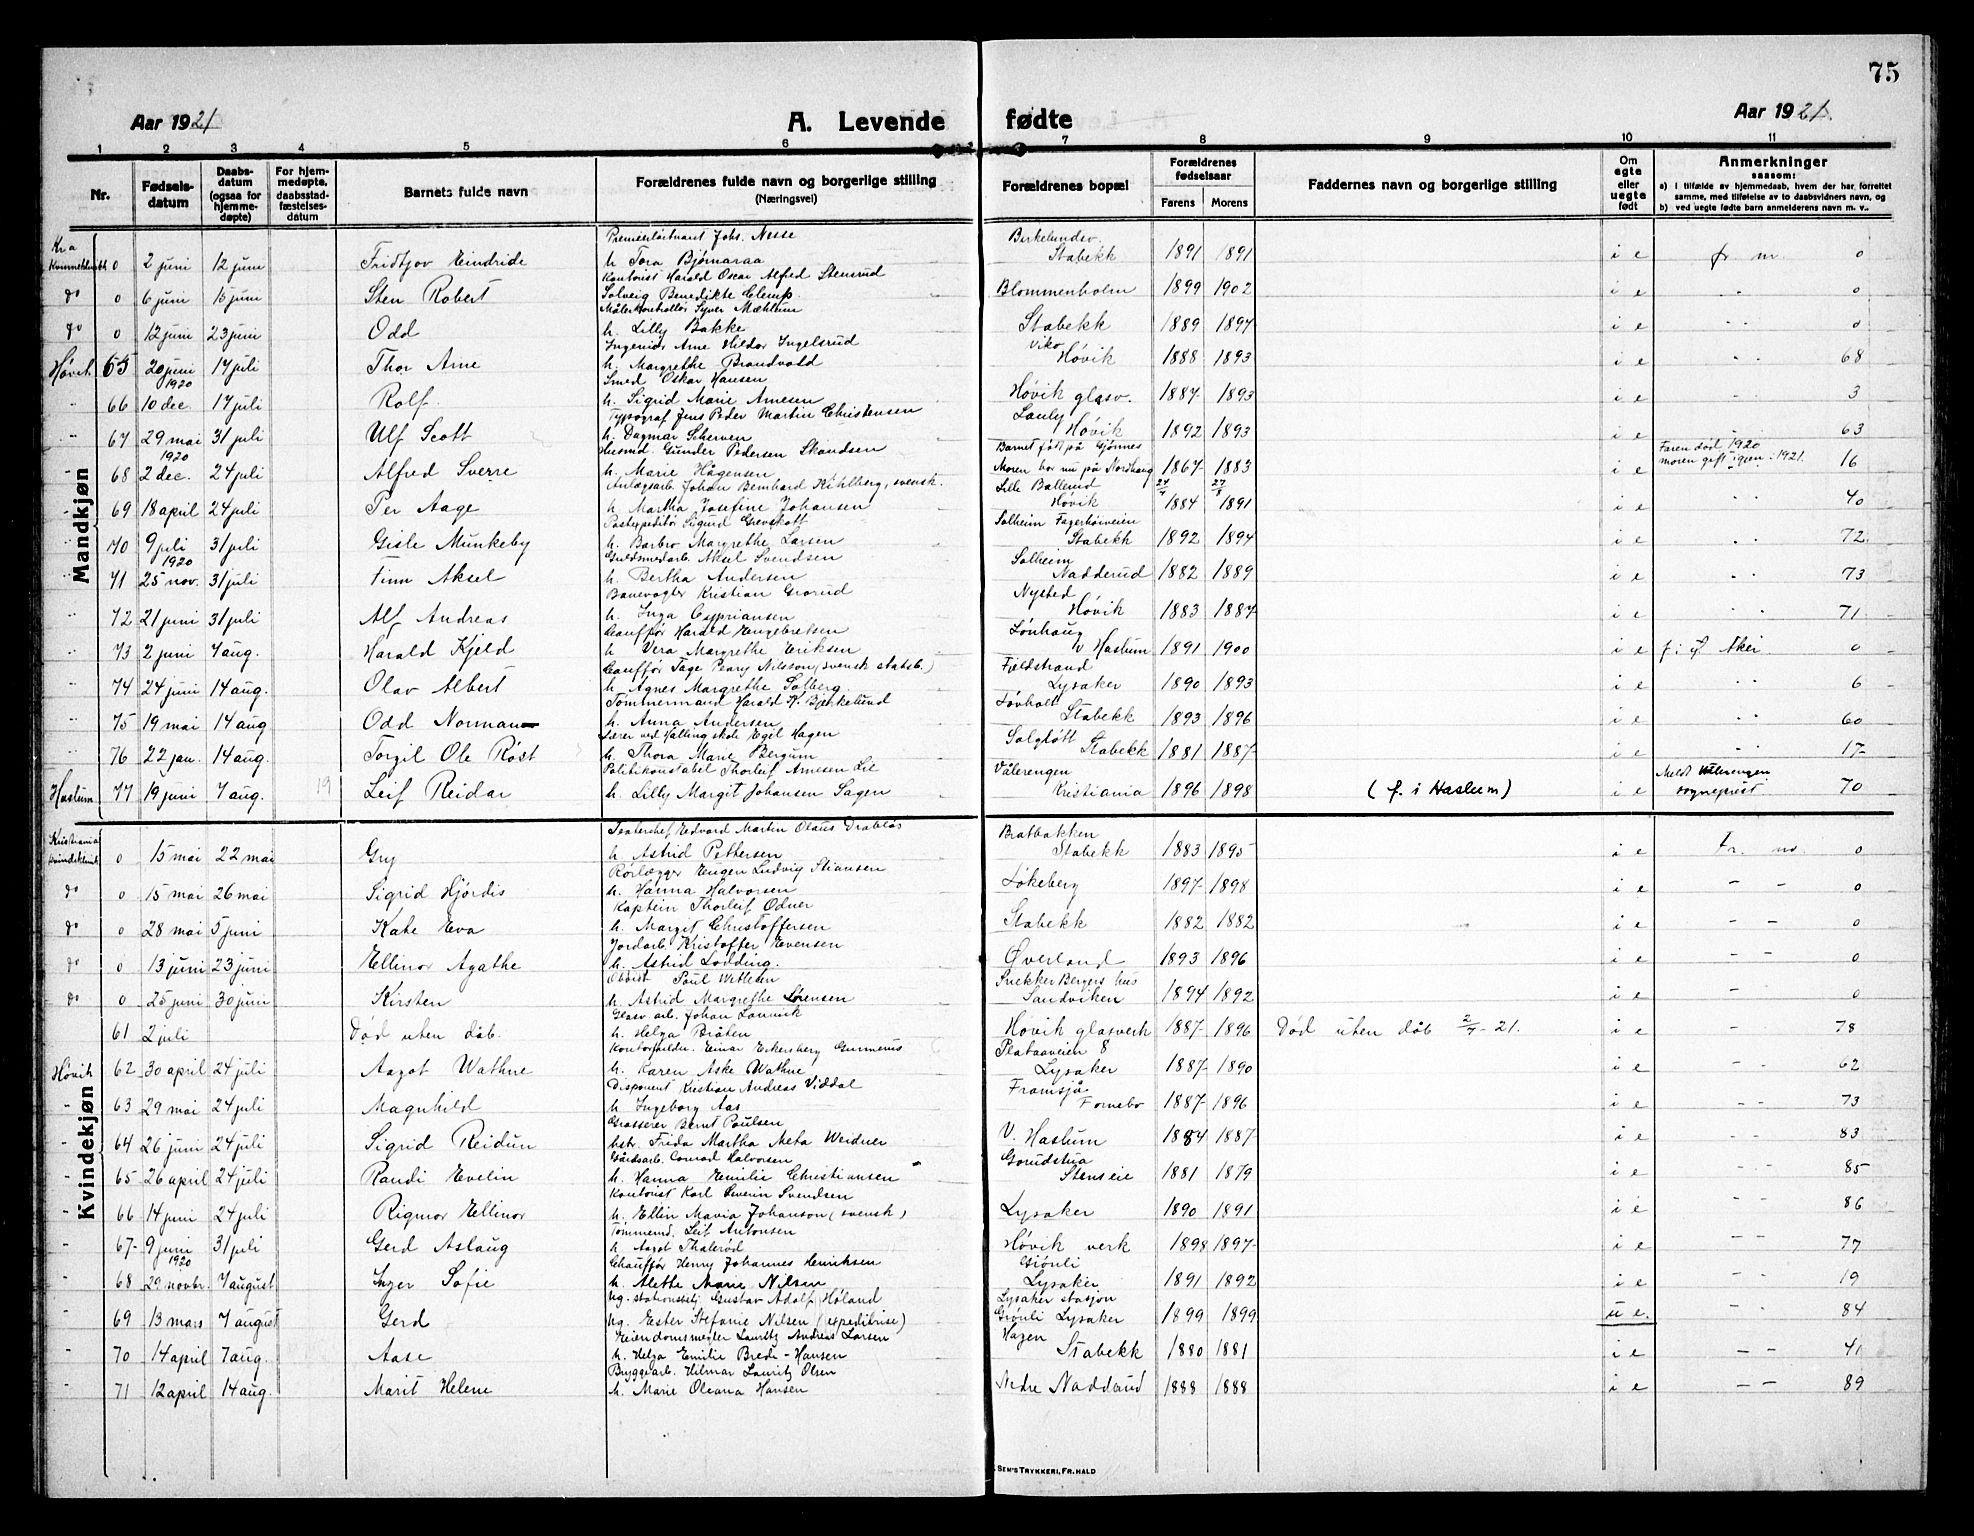 75
Aar 1921
A. Levende fødte
Aar 1921.
1 2 3 4 5 6 7 8 9 10 11
Nr.
Fødsels-datum
Daabs-datum (ogsaa for hjemme-døpte)
For hjem-medøpte, daabsstad-fæstelses-datum
Barnets fulde navn
Forældrenes fulde navn og borgerlige stilling (Næringsvei)
Forældrenes bopæl
Forældrenes fødselsaar
Farens Morens
Faddernes navn og borgerlige stilling
Om egte eller uegte født
Anmerkninger saasom:
a) i tilfælde av hjemmedaab, hvem der har forrettet samme, med tilføielse av to daabsvidners navn, og
b) ved uegte fødte barn anmelderens navn m. v..
Mandkjøn
Kra
0 2 juni 12 juni Fridtjov Eindride Premierløitnant Johs. Nesse h. Tora Bjørnaraa Birkelundsv. Stabekk 1891 1891 i e fr m. 0
do 0 6 juni 15 juni Sten Robert Kontorist Harald Oscar Alfred Stensrud Solveig Benedikte Clemp. Blommenholm 1899 1902 i e " " 0
do 0 12 juni 23 juni Odd Målerkontrollør Syver Mæhlum h. Lilly Bakke Stabekk 1889 1897 i e " " 0
Høvik 65 20 juni 17 juli Thor Arne Ingeniør Arne Hildor Ingelsrud h. Margrethe Brandvold Viko Høvik 1888 1893 i e " " 68
" 66 10 dec. 1920 17 juli Rolf. Smed Oskar Hansen h. Sigrid Marie Arnesen Høvik glasv. 1887 1893 i e " " 3
" 67 29 mai 31 juli Ulf Scott Typograf Jens Peder Martin Christensen h. Dagmar Scherven Lauly Høvik 1892 1893 i e 63
" 68 2 dec. 1920 24 juli Alfred Sverre Husmd. Gunder Pedersen Skandsen h. Marie Hågensen Barnet født på Gjønnes Moren bor nu på Nordhaug 1867 1883 i e Faren død 1920 moren gift igjen 1921. 16
" 69 18 april 24 juli Per Aage Anlægsarb. Johan Bernhard Kihlberg, svensk. h. Martha Josefine Johansen Lille Ballerud Høvik 24/4 1884 27/8 1891 i e " " 40
" 70 9 juli 31 juli Gisle Munkeby Postexpeditør Sigurd Grevskott h. Barbro Margrethe Larsen Solheim Fagerhøiveien Stabekk 1892 1894 i e " " 72
" 71 25 nov. 1920 31 juli Finn Aksel Guldsmedarb. Aksel Svendsen h. Bertha Andersen Solheim Nadderud 1882 1889 i e " " 73
" 72 21 juni 31 juli Alf Andreas Banevogter Kristian Grorud h. Inga Cypriansen Nysted Høvik 1883 1887 i e " " 71
" 73 2 juni 7 aug. Harald Kjeld Cauffør Harald Engebretsen h Vera Margrethe Eriksen Lønhaug v Haslum 1891 1900 i e f. i Aker 0
" 74 24 juni 14 aug. Olav Albert Cauffør Tage Peary Nilsson (svensk statsb.) h. Agnes Margrethe Solberg. Fjeldstrand Lysaker 1890 1893 i e " " 6
" 75 19 mai 14 aug Odd Norman Tømmermand Harald K. Bjerkelund h. Anna Andersen Løvholt Stabekk 1893 1896 i e " " 60
" 76 22 jan. 14 aug. Torgil Ole Røst Lærer ved Halling skole Egil Hagen h. Thora Marie Bergum Solgløtt Stabekk 1881 1887 i e " " 17
Haslum 77 19 juni 7 aug. 19 Leif Reidar Politikonstabel Thorleif Arnesen Lie h. Lilly Margit Johansen Sagen Vålerengen Kristiania 1896 1898 (f. i Haslum) i e Meldt Vålerengen sogneprest 70
Kvindekjøn
Kristiania Kvindeklinik 0 15 mai 22 mai Gry Teaterchef Edvard Martin Olaus Drabløs h. Astrid Pettersen Bratbakken Stabekk 1883 1895 i e Fr. m. 0
do 0 15 mai 26 mai Sigrid Hjördis Rørlægger Eugen Ludvig Stiansen h. Hanna Halvorsen Løkeberg 1897 1898 i e – – 0
do 0 28 mai 5 juni Kate Eva Kaptein Thorleif Odner h. Margit Christoffersen Stabekk 1882 1882 i e – – 0
do 0 13 juni 23 juni Ellinor Agathe Jordarb. Kristoffer Evensen h. Astrid Lodding. Øverland 1893 1896 i e – – 0
do 0 25 juni 30 juni Kirsten Poul h. Astrid Margrethe Sørensen Snekker Bergers hus Sandviken 1894 1892 i e – – 0
61 2 juli Død uten dåb. Glasv. arb. Johan h. Helga Bråten Høvik glasverk 1887 1896 Død uten dåb 2/7 - 21. i e – 78
Høvik 62 30 april 24 juli Aagot Wathne Einar Eckersberg Gunnerus h. Karen Aske Wathne Plataaveien 8 Lysaker 1887 1890 i e – – 62
" 63 29 mai 24 juli Magnhild Disponent Kristian Andreas Viddal h. Ingeborg Aas Framsjå Fornebo 1887 1896 i e – – 73
" 64 26 juni 24 juli Sigrid Reidun Grosserer Bernt Poulsen hstr. Frida Martha Meta Weidner V. Haslum 1884 1887 i e – – 83
" 65 26 april 24 juli Randi Evelin Gårdsarb. Conrad Halvorsen h. Hanna Emilie Christiansen Grudstua Stenseie 1881 1879 i e – – 85
" 66 14 juni 24 juli Rigmor Ellinor Kontorist Karl Severin Svendsen h. Ellen Maria Johanson (svensk) Lysaker 1890 1891 i e – – 86
" 67 9 juni 31 juli Gerd Aslaug Tømmerm. Leif Antonsen h. Aagot Thalerød Høvik verk 1898 1897 i e – – 77
" 68 29 novbr. 1920 7 august Inger Sofie Chauffør Henry Johannes Henriksen h. Alethe Marie Nilsen Grönli Lysaker 1891 1892 i e – – 19
" 69 13 mars 7 august Gerd Ug. stationsbetj Gustav Adolf Høland Ug. Ester Stefanie Nilsen (expeditrise) Lysaker stasjon Grønli Lysaker 1899 1899 u e. – – 84
" 70 14 april 7 aug. Aase Eiendomsmegler Lauritz Andreas Larsen h. Helga Emilie Brede-Hansen Hagen Stabekk 1880 1881 i e – – 41
" 71 12 april 14 aug. Marit Helene Bryggearb. Hilmar Lauritz Olsen h. Marie Oleana Hansen Nedre Nadderud 1888 1888 i e – – 89
SEM'S TRYKKERI, FR. HALD